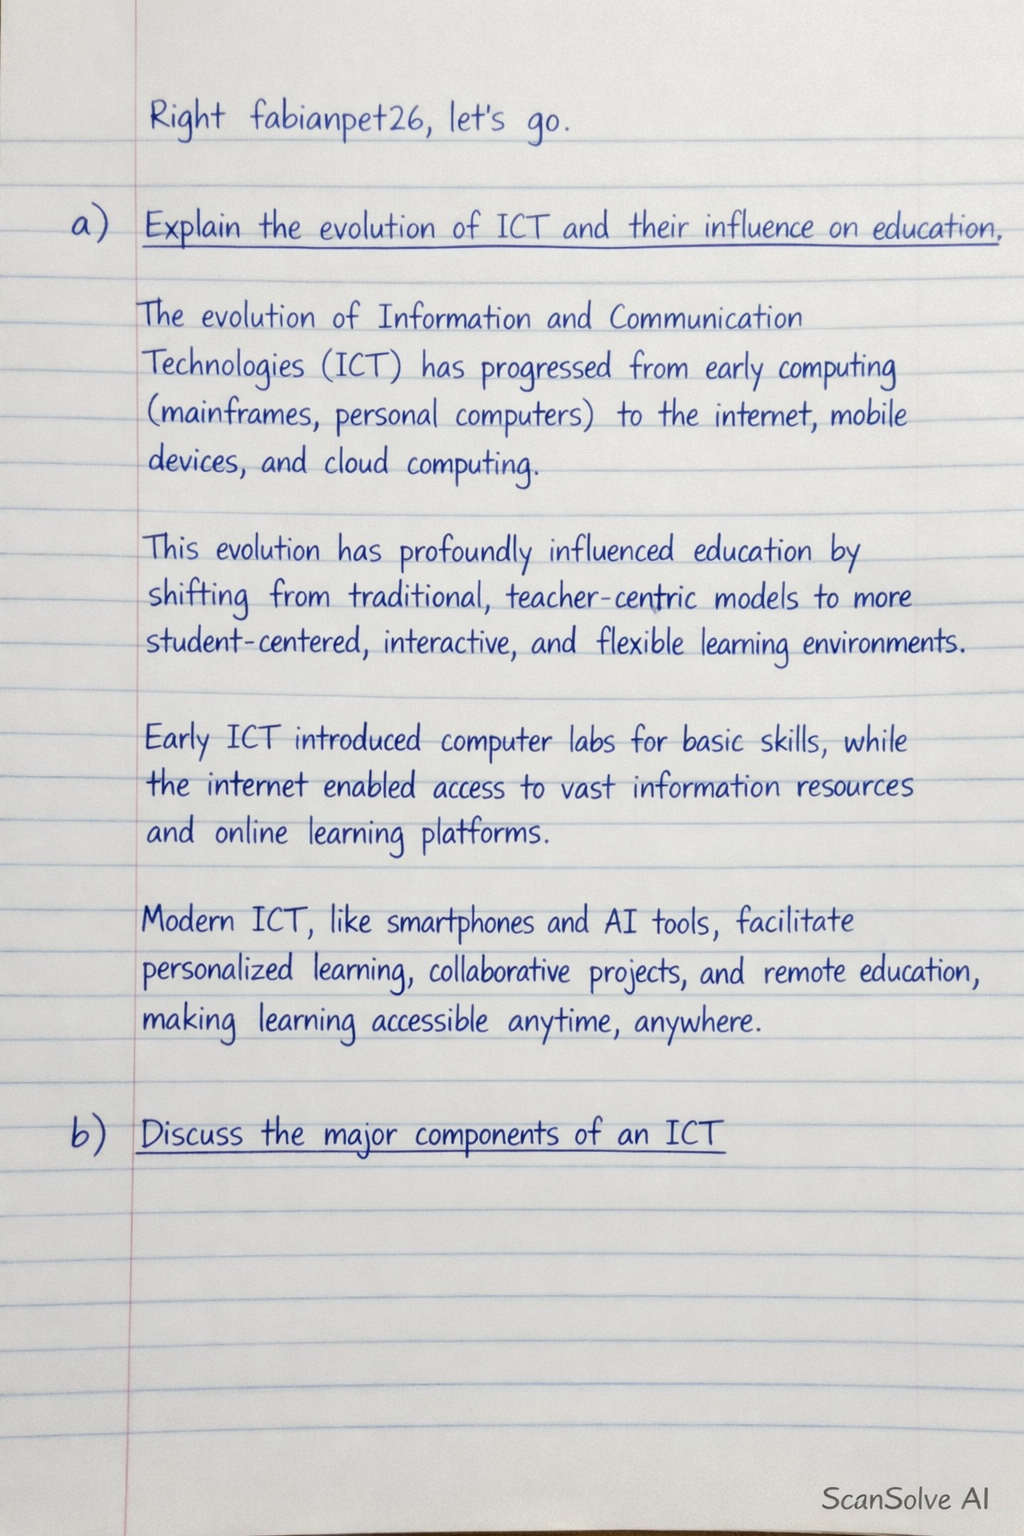 Right fabianpet26, let's go.
a) Explain the evolution of ICT and their influence on education.
The evolution of Information and Communication
Technologies (ICT) has progressed from early computing
(mainframes, personal computers) to the internet, mobile
devices, and cloud computing.
This evolution has profoundly influenced education by
shifting from traditional, teacher-centric models to more
student-centered, interactive, and flexible learning environments.
Early ICT introduced computer labs for basic skills, while
the internet enabled access to vast information resources
and online learning platforms.
Modern ICT, like smartphones and AI tools, facilitate
personalized learning, collaborative projects, and remote education,
making learning accessible anytime, anywhere.
b) Discuss the major components of an ICT
ScanSolve AI